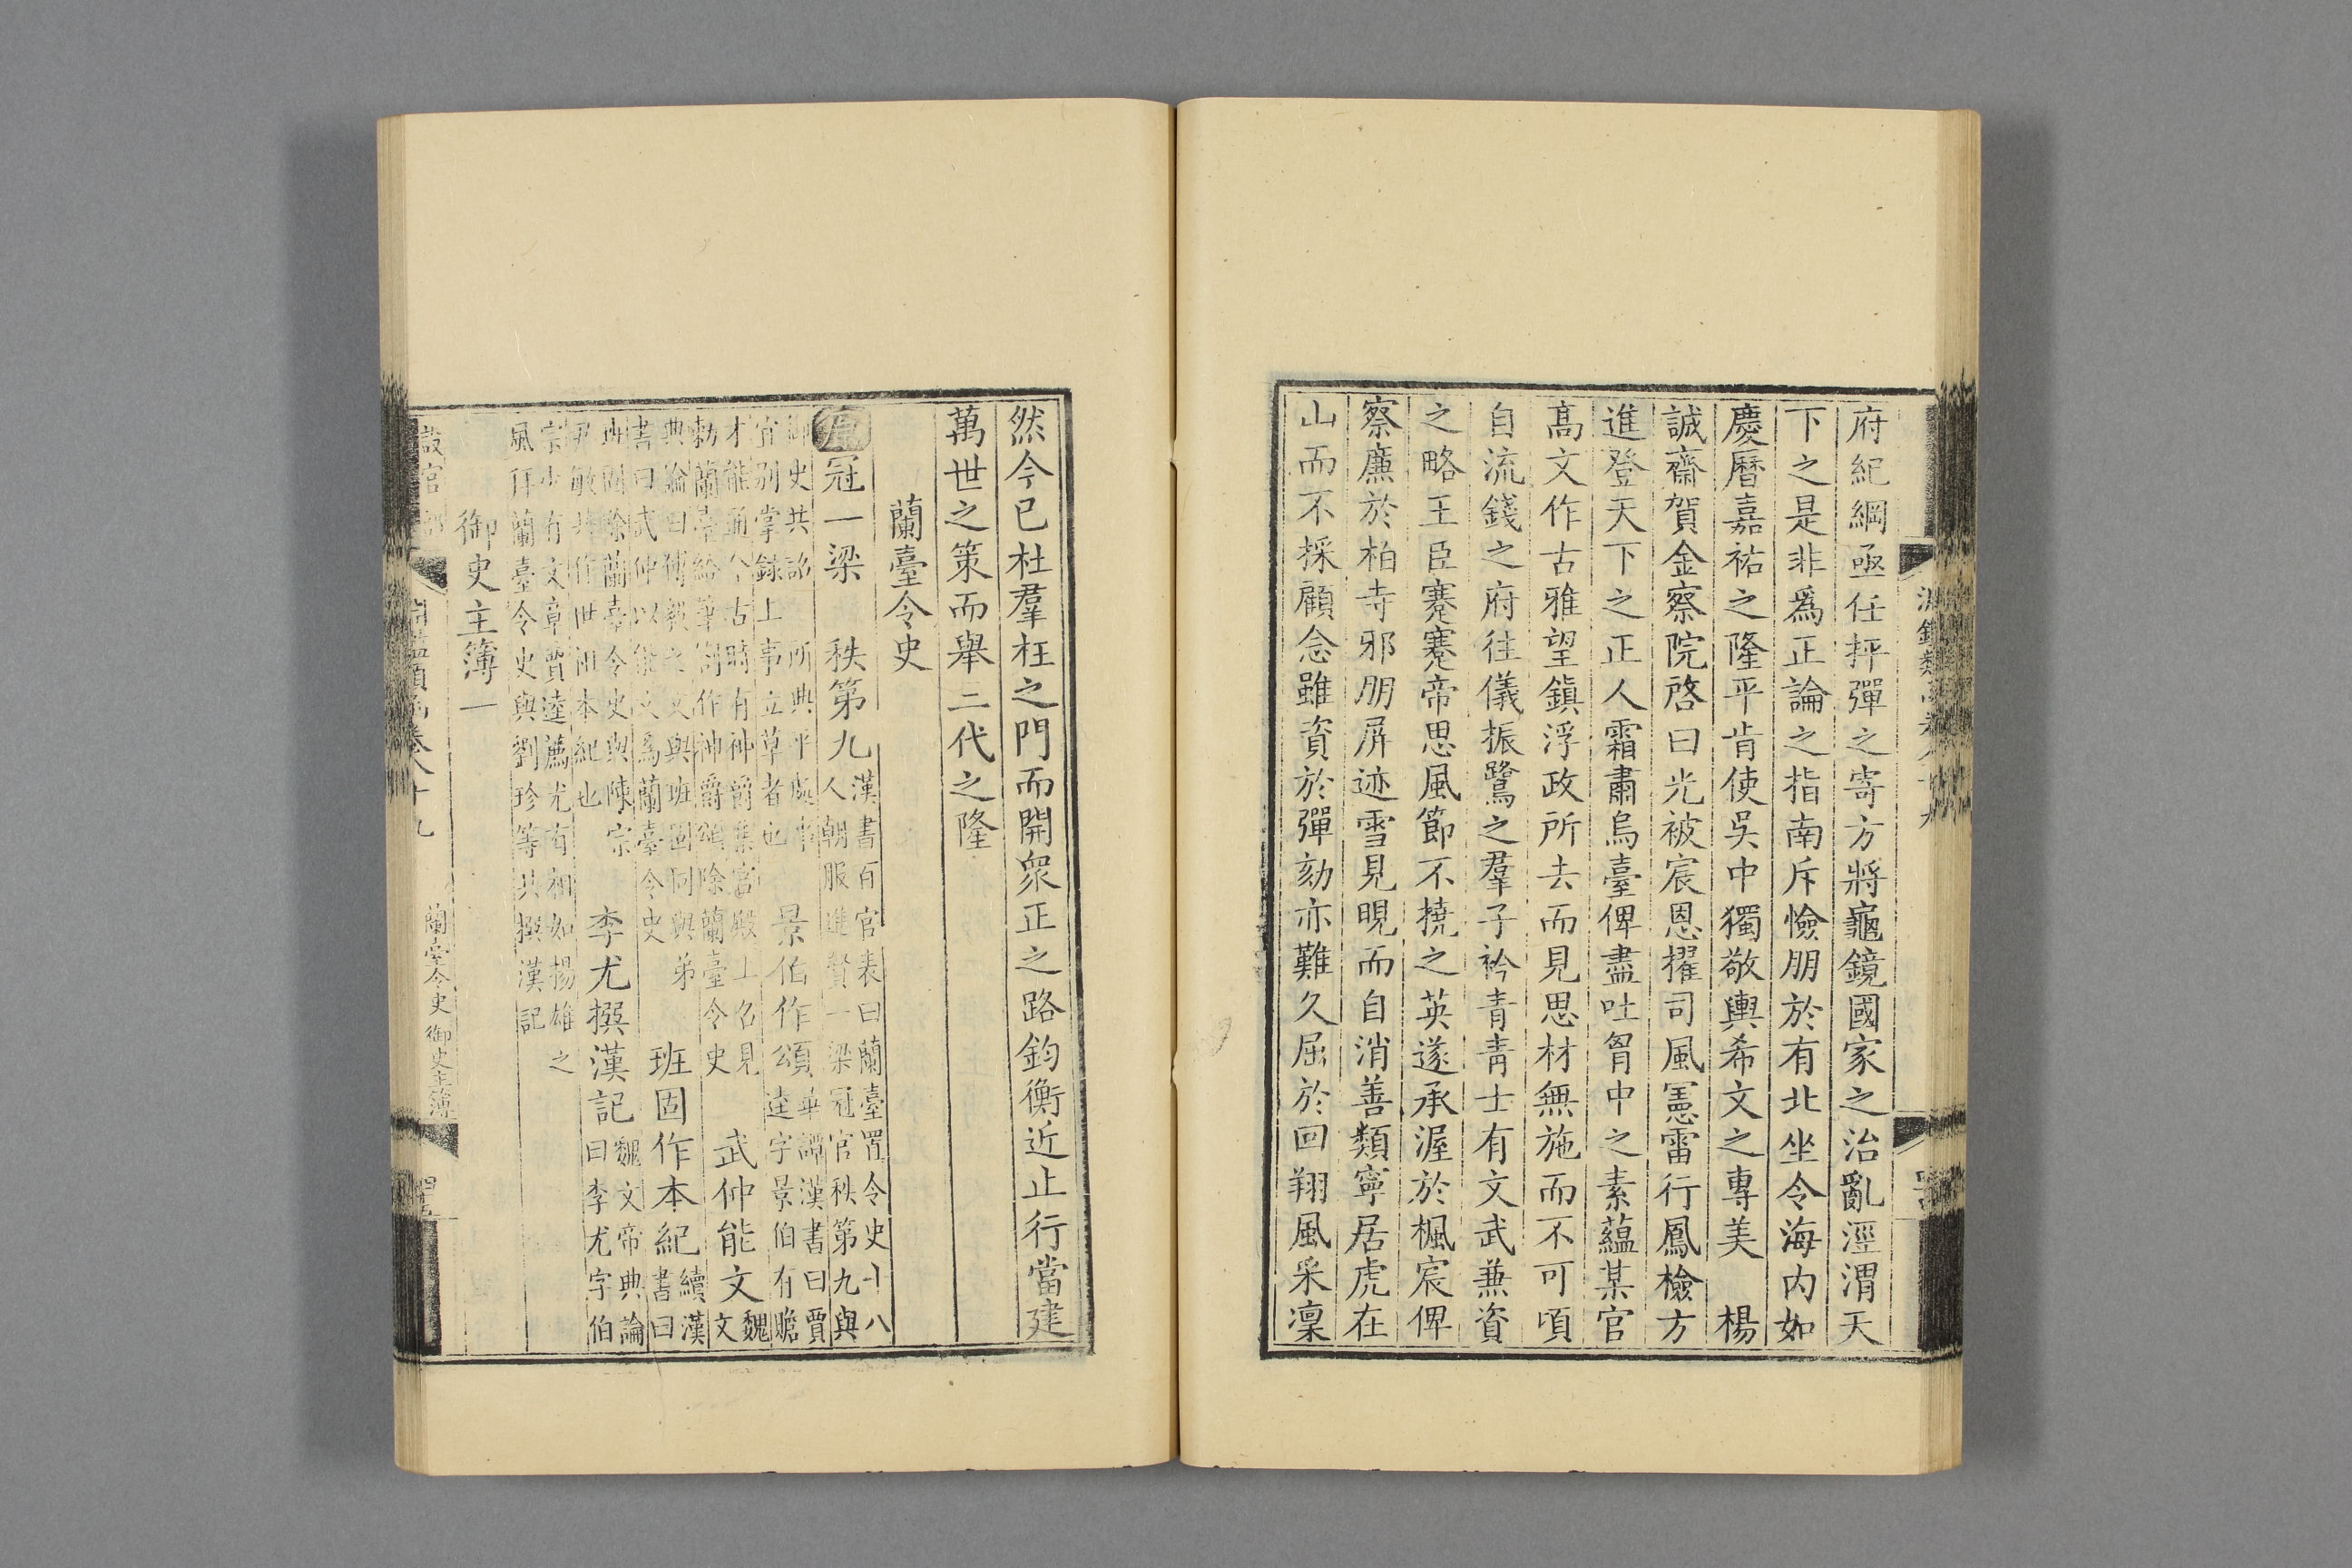 府紀綱亟任抨彈之寄方將龜鏡國家之治亂涇渭天
下之是非爲正論之指南斥憸朋於有北坐令海内如
慶曆嘉祐之隆平肯使吳中獨敬輿希文之專美　楊
誠齋賀金察院啓曰光被宸恩擢司風憲雷行鳳檢方
進登天下之正人霜肅烏臺俾盡吐胷中之素蘊某官
髙文作古雅望鎭浮政所去而見思材無施而不可頃
自流錢之府往儀振鷺之羣子衿青青士有文武兼資
之略王臣蹇蹇帝思風節不撓之英遂承渥於楓宸俾
察廉於柏寺邪朋屏迹雪見晛而自消善類寧居虎在
山而不採顧念雖資於彈劾亦難久屈於回翔風采凜
然今已杜羣枉之門而開衆正之路鈞衡近止行當建
萬世之策而舉三代之隆
蘭臺令史
冠一梁　秩第九
漢書百官表曰蘭臺置令史十八
人朝服進賢一梁冠官秩第九與
御史共 所典平處事
官别掌録上事立草者也
景伯作頌
華譚漢書曰賈
逵字景伯有贍
才能通今古時有神爵集宮殿上召見
勑蘭臺給筆劄作神爵頌除蘭臺令史
武仲能文
魏
文
典論曰傅毅之文與班固同與弟
書曰武仲以能文爲蘭臺令史
班固作本紀
續漢
書曰
班固除蘭臺令史與陳宗
尹敏共作世祖本紀也
李尤撰漢記
魏文帝典論
曰李尤字伯
宗少有文章賈逵薦尤有相如揚雄之
風拜蘭臺令史與劉珍等共撰漢記
御史主簿一
設官部
淵鑑類函卷八十九
蘭臺令史 御史主簿